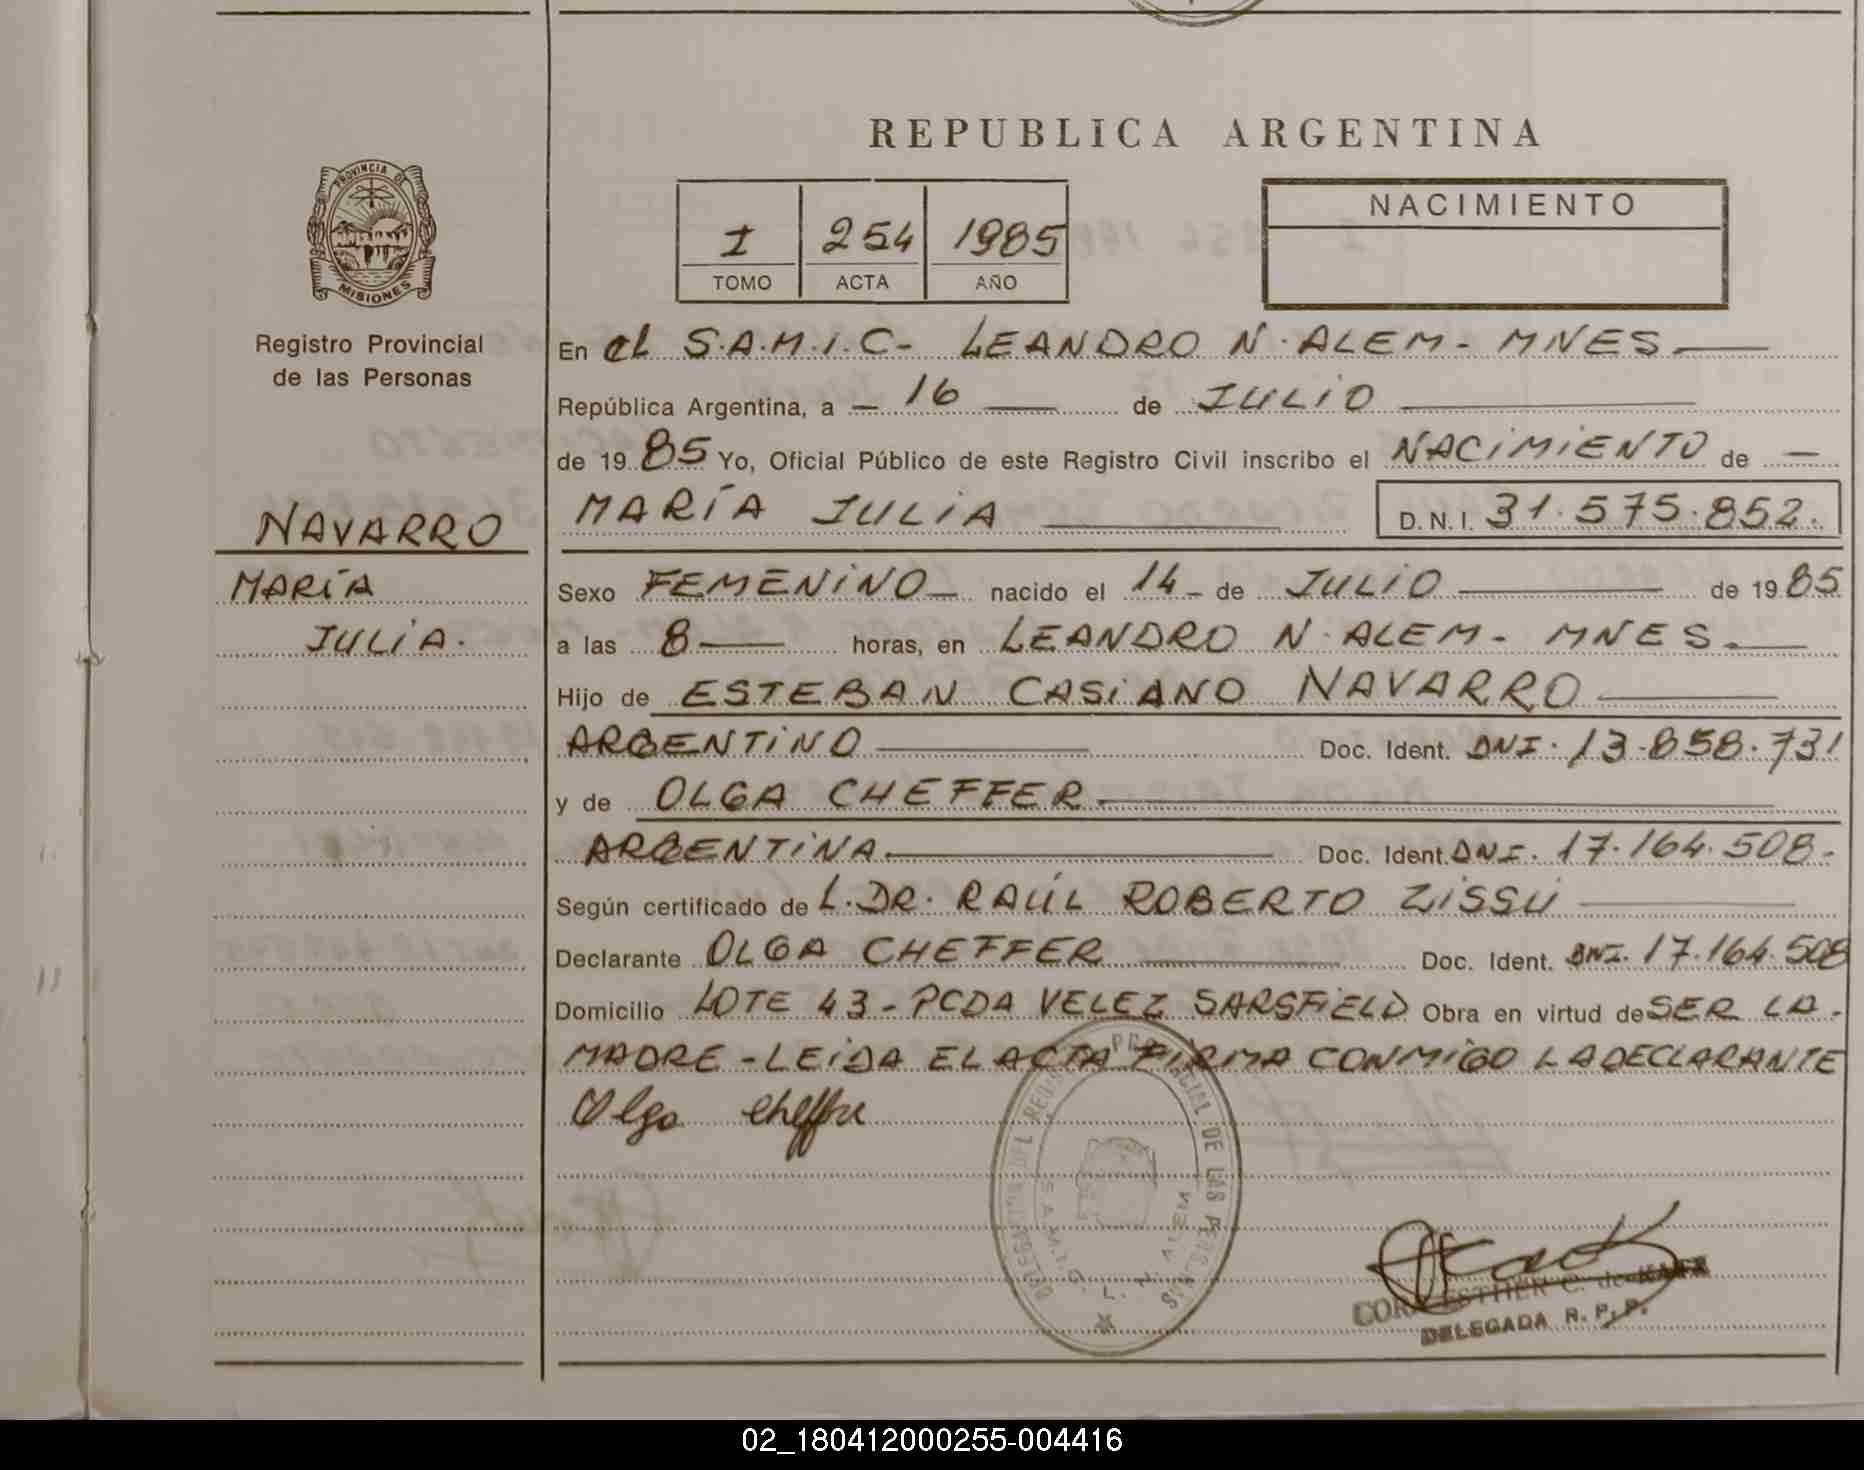 REPUBLICA ARGENTINA
PROVINCIA DE
MISIONES
Registro Provincial
de las Personas
I 254 1985
TOMO ACTA AÑO
NACIMIENTO
En el S.A.M.I.C- LEANDRO N. ALEM - MNES
República Argentina, a - 16 de JULIO
de 19 85 Yo, Oficial Público de este Registro Civil inscribo el NACIMIENTO de
NAVARRO
MARÍA JULIA D.N.I. 31.575.852.
MARÍA
JULIA.
Sexo FEMENINO nacido el 14 - de JULIO de 19 85
a las 8 horas, en LEANDRO N. ALEM - MNES.
Hijo de ESTEBAN CASIANO NAVARRO
ARGENTINO Doc. Ident. DNI. 13.858.731
y de OLGA CHEFFER
ARGENTINA Doc. Ident. DNI. 17.164.508-
Según certificado de L. DR. RAÚL ROBERTO ZISSU
Declarante OLGA CHEFFER Doc. Ident. DNI. 17.164.508
Domicilio LOTE 43 - PCDA VELEZ SARSFIELD Obra en virtud de SER LA-
MADRE - LEIDA EL ACTA FIRMA CONMIGO LA DECLARANTE
Olga Cheffer
DELEGACION DEL REGISTRO PROVINCIAL DE LAS PERSONAS
S.A.M.I.C. L. N. ALEM
ESTHER C. de
DELEGADA R. P. P.
02_180412000255-004416